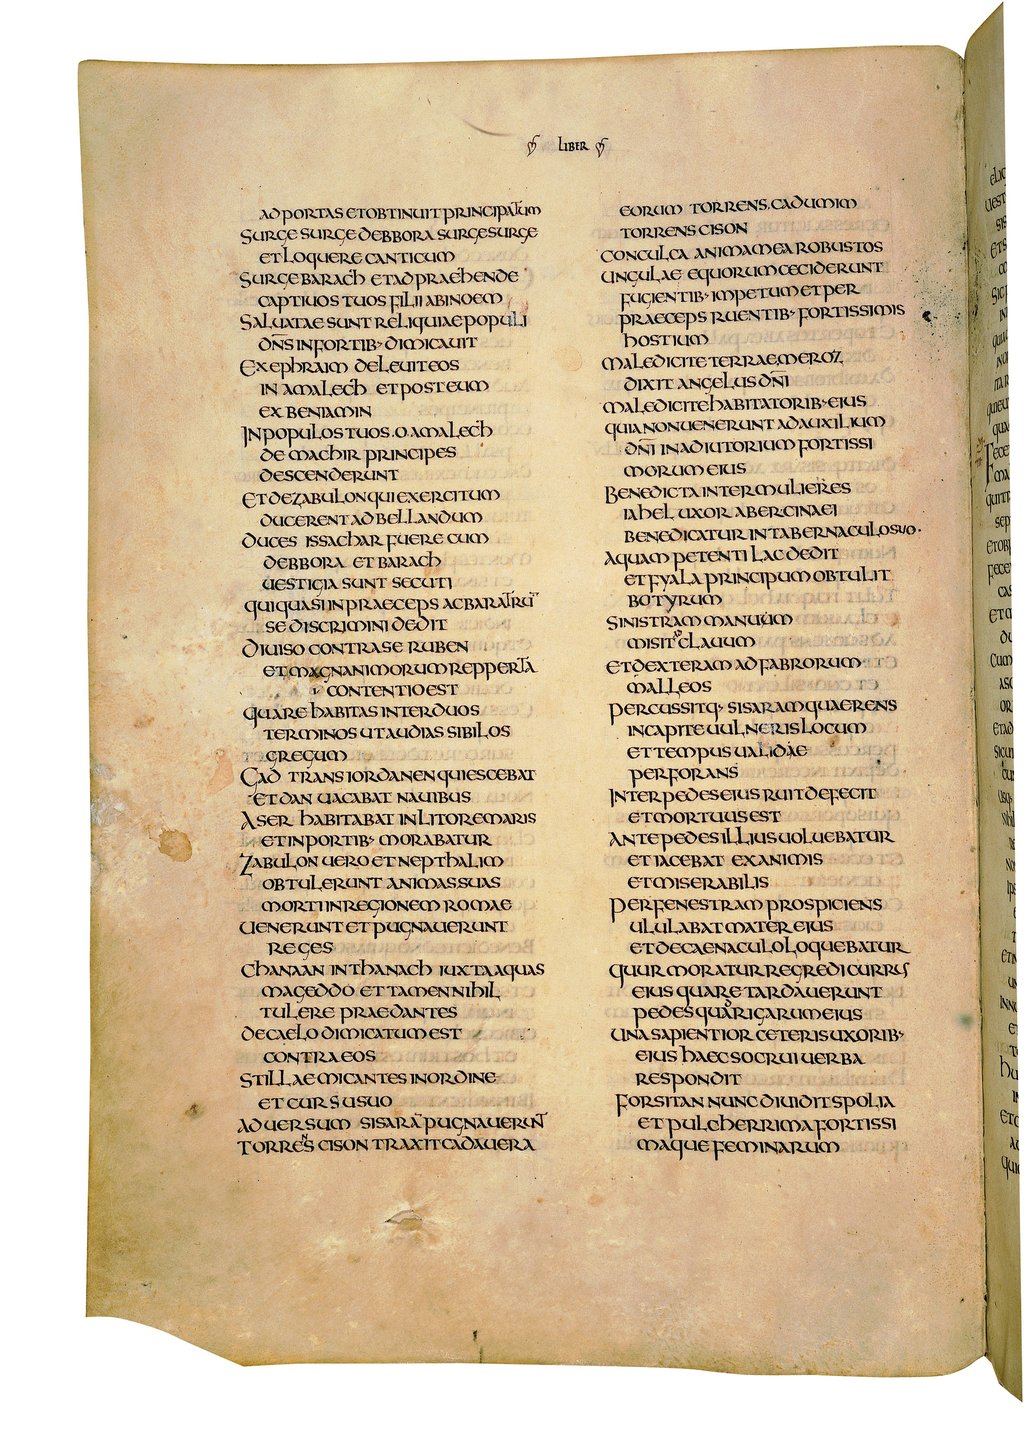 LIBER
AD PORTAS ET OBTINUIT PRINCIPATUM
SURGE SURGE DEBBORA SURGE SURGE
ET LOQUERE CANTICUM
SURGE BARACH ET ADPRAEHENDE
CAPTIUOS TUOS FILII ABINOEM
SALUATAE SUNT RELIQUIAE POPULI
DN̄S IN FORTIB· DIMICAUIT
EX EPHRAIM DELEUIT EOS
IN AMALECH ET POST EUM
EX BENIAMIN
IN POPULOS TUOS·O·AMALECH
DE MACHIR PRINCIPES
DESCENDERUNT
ET DE ZABULON QUI EXERCITUM
DUCERENT AD BELLANDUM
DUCES ISSACHAR FUERE CUM
DEBBORA ET BARACH
UESTIGIA SUNT SECUTI
QUI QUASI IN PRAECEPS AC BARATRŪ
SE DISCRIMINI DEDIT
DIUISO CONTRA SE RUBEN
ET MAGNANIMORUM REPPERTA
CONTENTIO EST
QUARE HABITAS INTER DUOS
TERMINOS UT AUDIAS SIBILOS
GREGUM
GAD TRANS IORDANEN QUIESCEBAT
ET DAN UACABAT NAUIBUS
ASER HABITABAT IN LITORE MARIS
ET IN PORTIB· MORABATUR
ZABULON UERO ET NEPTHALIM
OBTULERUNT ANIMAS SUAS
MORTI IN REGIONEM ROMAE
UENERUNT ET PUGNAUERUNT
REGES
CHANAAN IN THANACH IUXTA AQUAS
MAGEDDO ET TAMEN NIHIL
TULERE PRAEDANTES
DE CAELO DIMICATUM EST
CONTRA EOS
STILLAE MICANTES IN ORDINE
ET CURSU SUO
ADUERSUM SISARA PUGNAUERUNT
TORRENS CISON TRAXIT CADAUERA
EORUM TORRENS·CADUMIM
TORRENS CISON
CONCULCA ANIMA MEA ROBUSTOS
UNGULAE EQUORUM CECIDERUNT
FUGIENTIB· IMPETUM ET PER
PRAECEPS RUENTIB· FORTISSIMIS
HOSTIUM
MALEDICITE TERRAE MEROZ
DIXIT ANGELUS DN̄I
MALEDICITE HABITATORIB· EIUS
QUIA NON UENERUNT AD AUXILIUM
DN̄I IN ADIUTORIUM FORTISSI
MORUM EIUS
BENEDICTA INTER MULIERES
IAHEL UXOR ABER CINAEI
BENEDICATUR IN TABERNACULO SUO·
AQUAM PETENTI LAC DEDIT
ET FYALA PRINCIPUM OBTULIT
BOTYRUM
SINISTRAM MANUUM
MISIT CLAUUM
ET DEXTERAM AD FABRORUM
MALLEOS
PERCUSSITQ· SISARAM QUAERENS
IN CAPITE UULNERIS LOCUM
ET TEMPUS UALIDAE
PERFORANS
INTER PEDES EIUS RUIT DEFECIT
ET MORTUUS EST
ANTE PEDES ILLIUS UOLUEBATUR
ET IACEBAT EXANIMIS
ET MISERABILIS
PER FENESTRAM PROSPICIENS
ULULABAT MATER EIUS
ET DE CAENACULO LOQUEBATUR
QUUR MORATUR REGREDI CURRUS
EIUS QUARE TARDAUERUNT
PEDES QUADRIGARUM EIUS
UNA SAPIENTIOR CETERIS UXORIB·
EIUS HAEC SOCRUI UERBA
RESPONDIT
FORSITAN NUNC DIUIDIT SPOLIA
ET PULCHERRIMA FORTISSI
MAQUE FEMINARUM